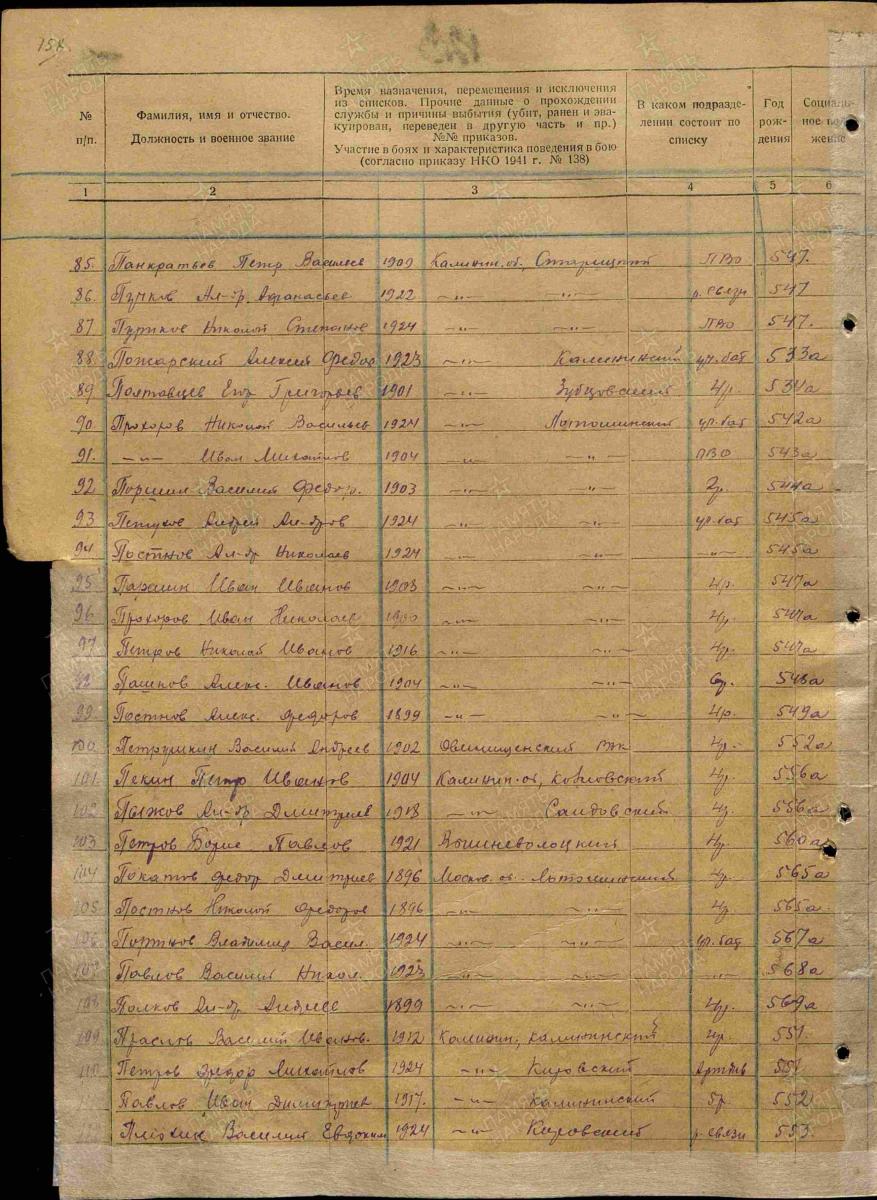 158.
№ п/п.
Фамилия, имя и отчество.
Должность и военное звание
Время назначения, перемещения и исключения
из списков. Прочие данные о прохождении
службы и причины выбытия (убит, ранен и эва-
куирован, переведен в другую часть и пр.)
№№ приказов.
Участие в боях и характеристика поведения в бою
(согласно приказу НКО 1941 г. № 138)
В каком подразде-
лении состоит по
списку
Год
рож-
дения
Социаль-
ное
жение
1 2 3 4 5 6
85. Панкратьев Петр Васильев 1909 Калинин. об, Старицкий ПВО 547.
86. Пучков Ал-др. Афанасьев 1922 -"- -"- р. связи 547
87 Николай Степанов 1924 -"- -"- ПВО 547.
88. Пожарский Алексей Федор 1923 -"- Калининский уч. бат 533а
89 Полтавцев Егор Григорьев 1901 -"- Зубцовский 4р. 534а
90. Прохоров Николай Васильев 1924 -"- Лотошинский уч. бат 542а
91. -"- Иван Михайлов 1904 -"- -"- ПВО 543а
92 Поршин Василий Федор. 1903 -"- -"- 2р. 544а
93 Петухов Андрей Ал-дров 1924 -"- -"- уч. бат 545а
94 Постнов Ал-др Николаев 1924 -"- -"- -"- 545а
95 Паршин Иван Иванов 1903 -"- -"- 4р. 547а
96 Прохоров Иван Николаев -"- -"- 4р. 547а
97 Петров Николай Иванов 1916 -"- -"- 4р. 547а
98 Пашков Алекс. Иванов 1904 -"- -"- 6р. 548а
99 Постнов Алекс. Федоров 1899 -"- -"- 4р. 549а
100. Петрушкин Василий Андреев 1902 Овинищенский РВК 4р. 552а
101. Пекин Петр Иванов 1904 Калинин. об, 4р. 556а
102 Пыжов Ал-др Дмитриев 1918 -"- Сандовский 4р. 556а
103 Петров Борис Павлов 1921 Вышневолоцкий 4р. 560а
104 Покатов Федор Дмитриев 1896 Москов. об. Лотошинский 4р. 565а
105. Постнов Николай Федоров 1896 -"- -"- 4р. 565а
106 Портнов Владимир Васил. 1924 -"- -"- уч. бат 567а
107 Павлов Василий Никол. 1923 -"- -"- -"- 568а
108 Полков Ал-др Андреев 1899 -"- -"- 4р. 569а
109 Праслов Василий Иванов. 1912 Калинин, Калининский 4р. 551.
110 Петров Федор Михайлов 1924 -"- Кировский 551
Павлов Иван Дмитриев 1917. -"- Калининский 5р. 552
Василий Евдоким 1924 -"- Кировский р. связи 553.
ПАМЯТЬ НАРОДА